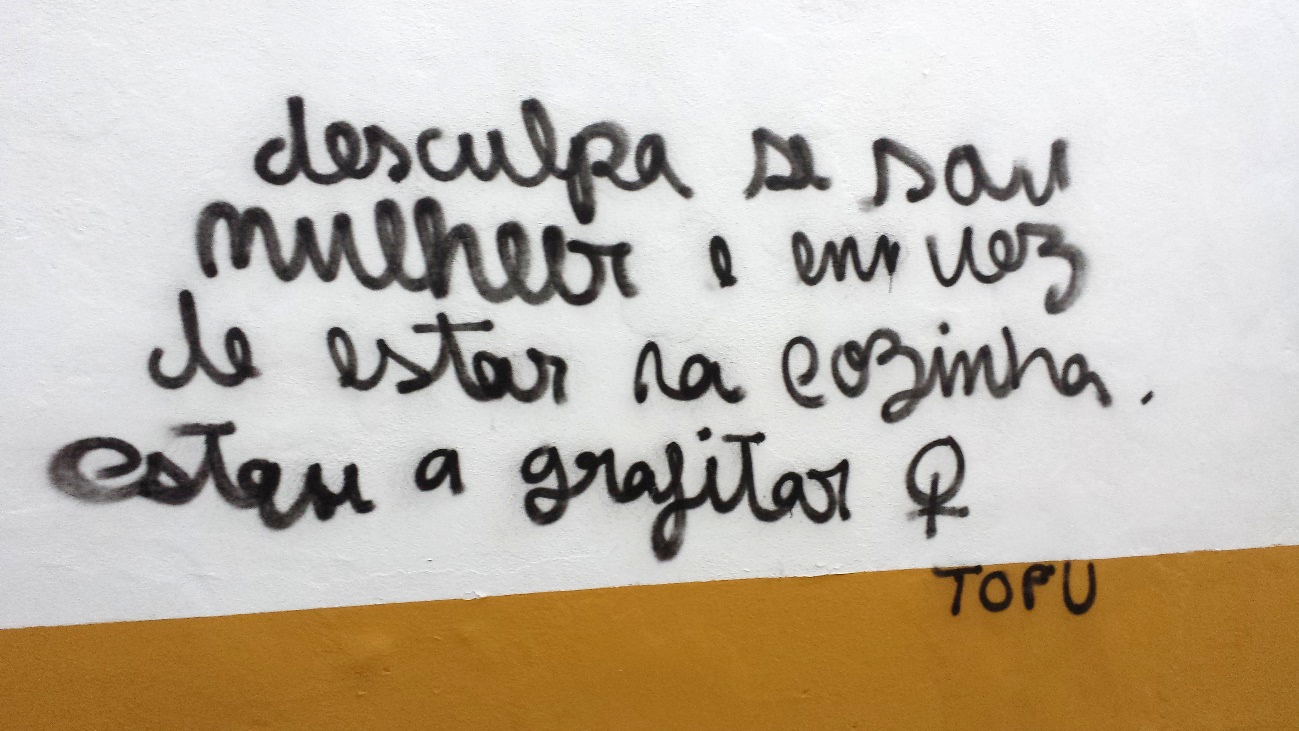 desculpa se sou
mulher e em vez
de estar na cozinha.
estou a grafitar ♀
TOPU